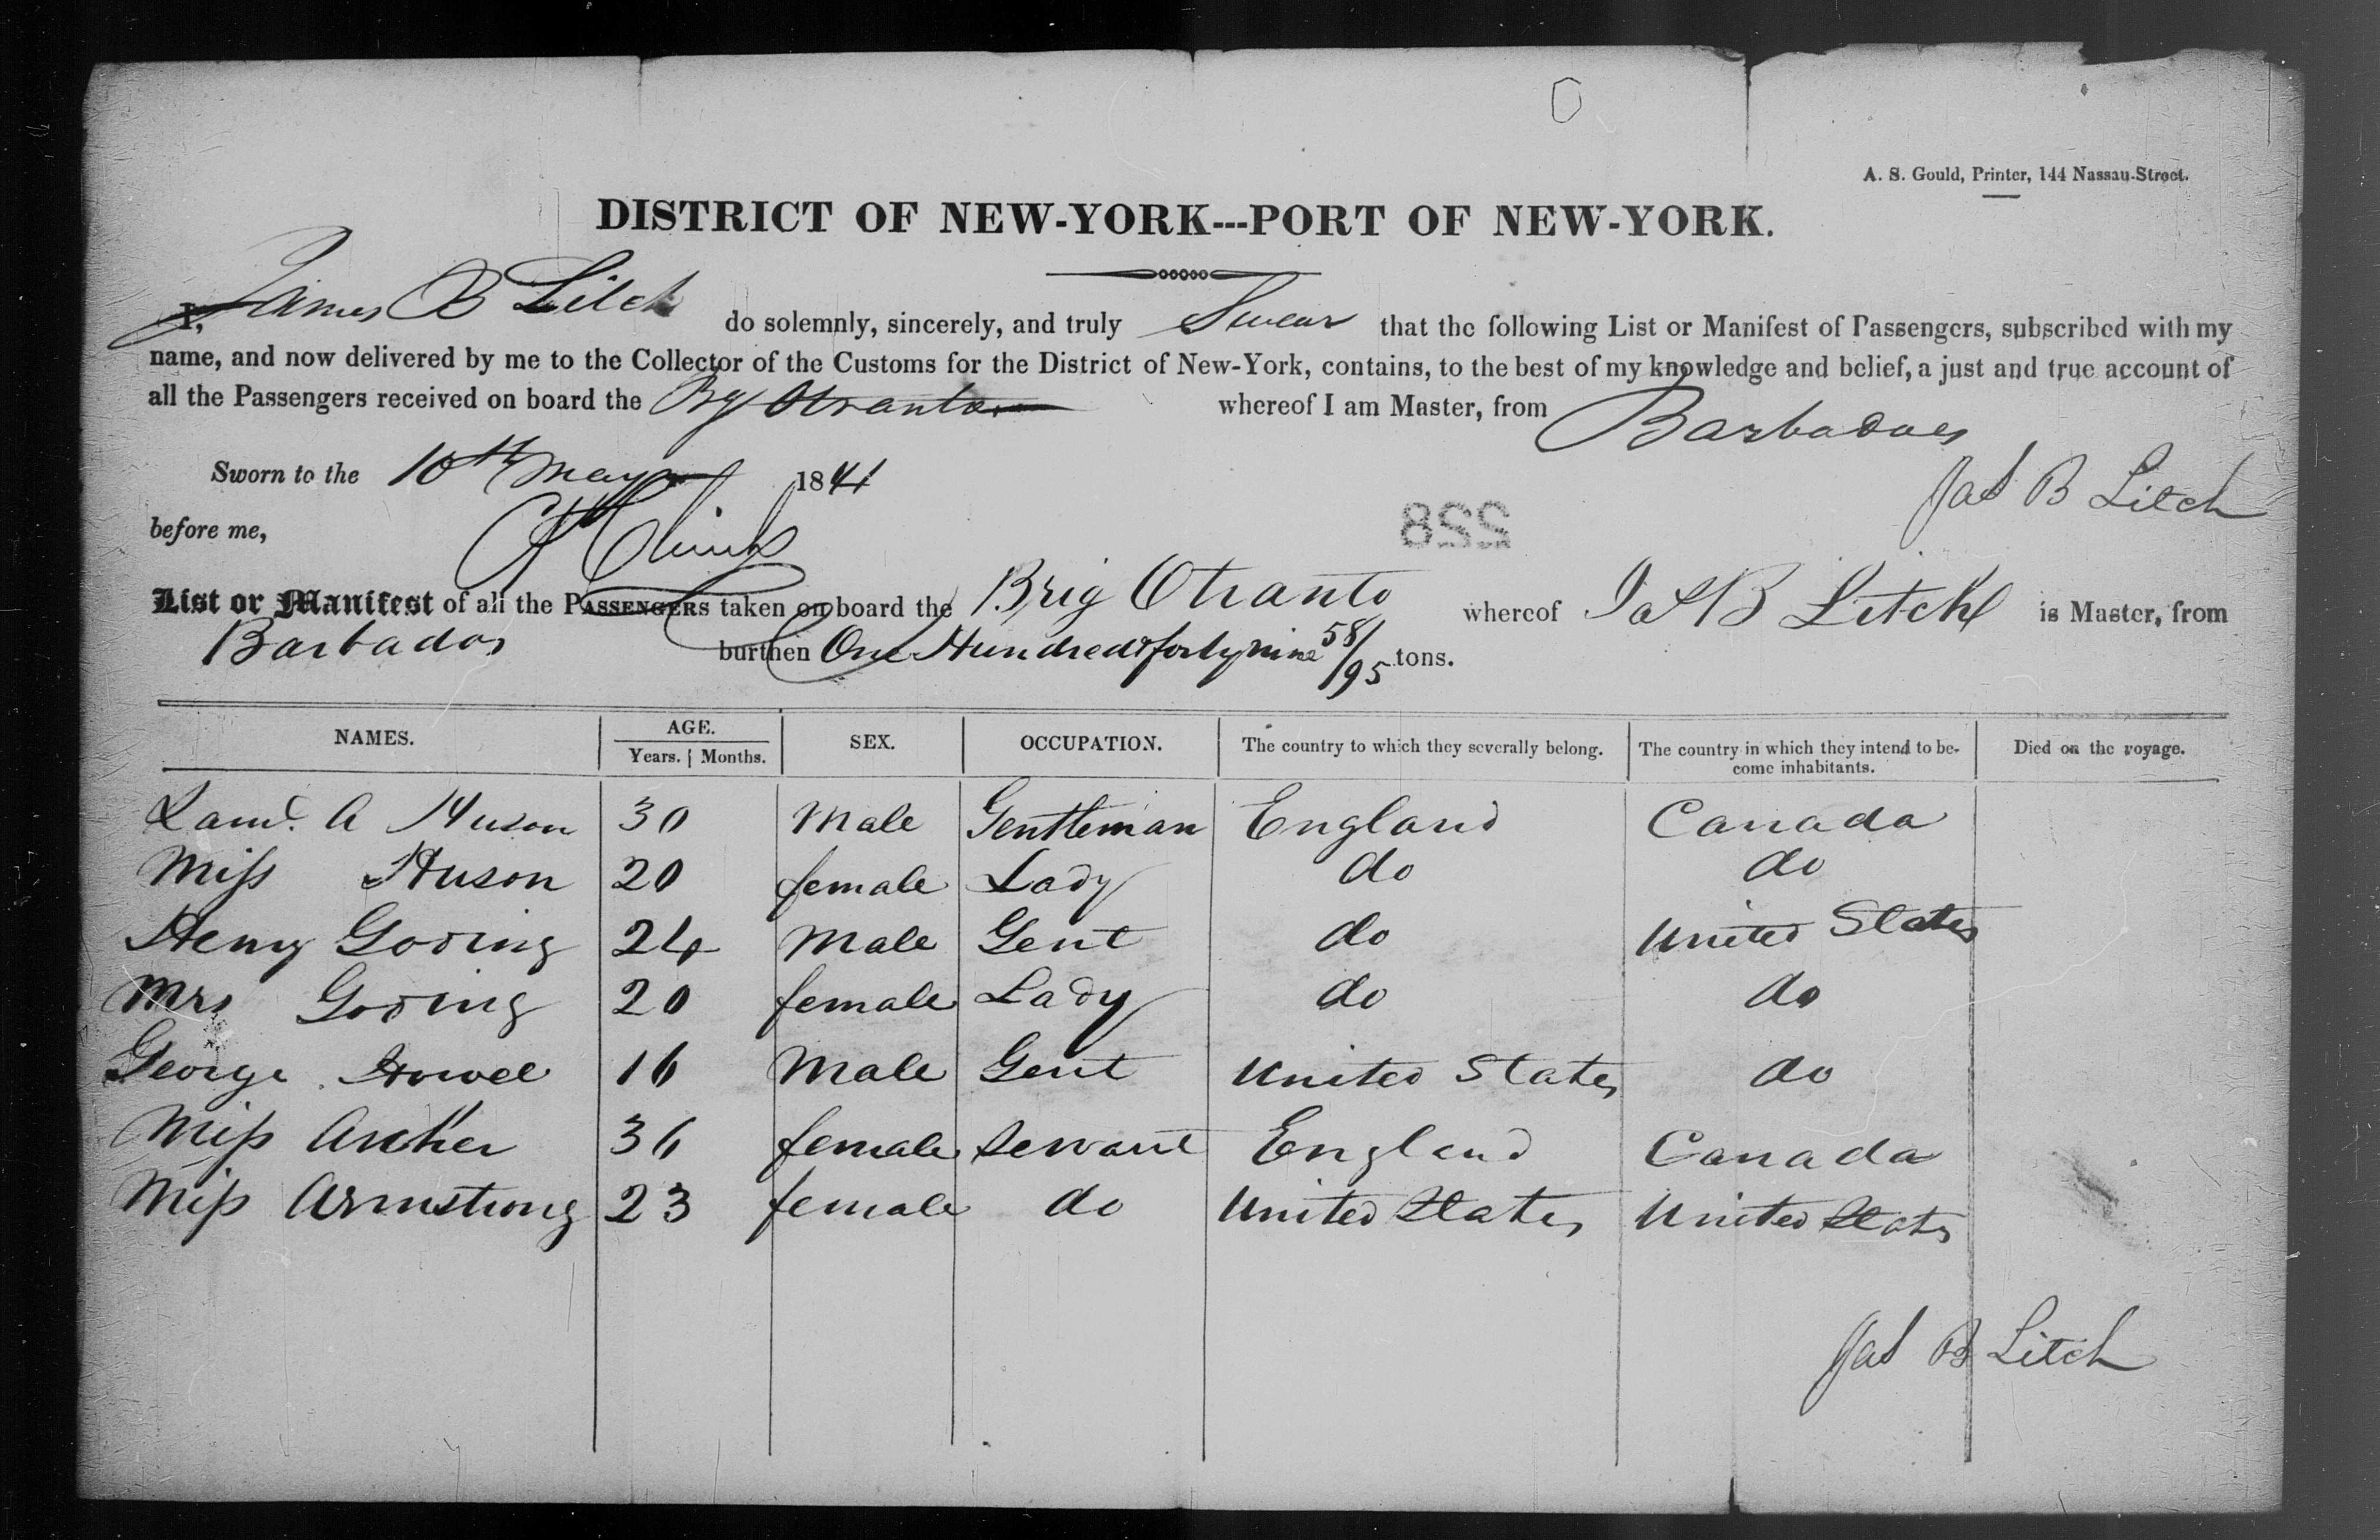 A. S. Gould, Printer, 144 Nassau-Street.
DISTRICT OF NEW-YORK---PORT OF NEW-YORK.
I, James B Litch do solemnly, sincerely, and truly Swear that the following List or Manifest of Passengers, subscribed with my
name, and now delivered by me to the Collector of the Customs for the District of New-York, contains, to the best of my knowledge and belief, a just and true account of
all the Passengers received on board the Brg Otranto whereof I am Master, from Barbadoes
Sworn to the 10th May 1841
Jas B Litch
before me,
228
List or Manifest of all the PASSENGERS taken on board the Brig Otranto whereof Jas B Litch is Master, from
Barbados burthen One Hundred & forty nine 58/95 tons.
NAMES. AGE. Years. Months. SEX. OCCUPATION. The country to which they severally belong. The country in which they intend to become inhabitants. Died on the voyage.
A Huson 30 Male Gentleman England Canada
Miss Huson 20 female Lady do do
Henry Goding 24 Male Gent do United States
Mrs Goding 20 female Lady do do
George Howel 16 Male Gent United States do
Miss Archer 36 female Servant England Canada
Miss Armstrong 23 female do United States United States
Jas B Litch